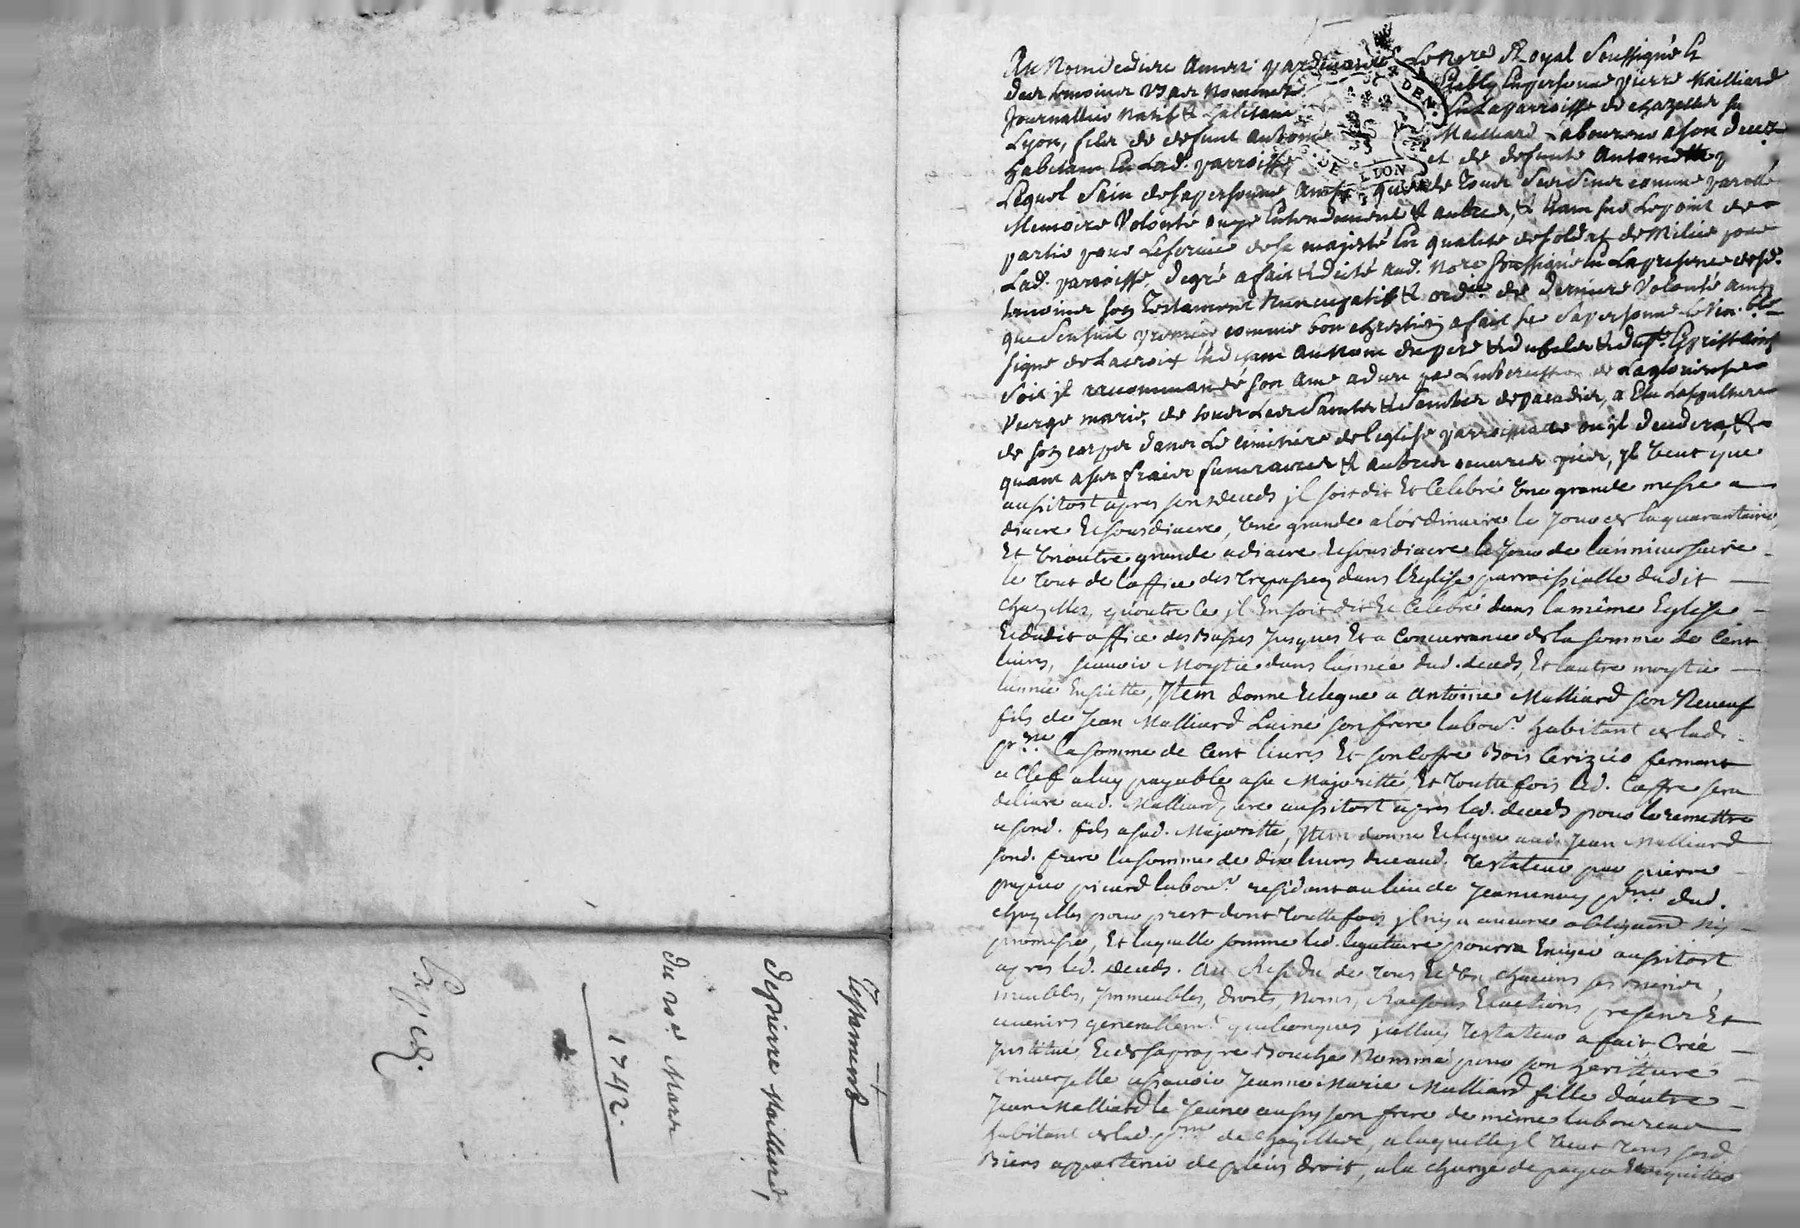 Testament
de pierre Maillard,
du 20e. Mars
1742.
Exped.
DE LION
GEN.
Au Nom de dieu Amen: pardevant Le Nore Royal soussigné &
des temoins Nommez Etably En personne pierre Mailliard
Journallier Natif & habitant En La parroisse de chazelles sur
Lyon, fils de defunt Antoine Mailliard Laboureur a son deces
habitant En Lad. parroisse et de defunte Antoinette
Lequel sain de sa personne Ainsy que de tous ses sens comme parolle
Memoire Volonté ouye Entendement & autres, & Etant sur Le point de
partir pour Le service de sa majesté En qualité de soldat de Milice pour
Lad. parroisse, de gré a fait & dicté aud. Nore soussigné En La presence desd.
temoins son Testament Nuncupatif & ordre. de derniere Volonté ainsy
que s'ensuit premier comme bon chrestien a fait sur sa personne Le Vén.ble
signe de La croix En disant au Nom du pere & du fils & du st. Esprit Ainsy
soit il recommandé son Ame a dieu par L'intercession de La glorieuse
Vierge marie, de tous Les saints & saintes de paradis, a Elu La sepulture
de son corps dans Le cimitiere de l'eglise parroissialle ou il decedera, &
quant a ses fraix funeraires & autres oeuvres pies, Il Veut que
aussitost apres son deceds il soit dit Et Celebré Une grande messe a
diacre Et sousdiacre, Une grande a l'ordinaire le jour de la quarantaine,
Et Un autre grande a diacre Et sousdiacre le Jour de l'anniversaire
le Tout de l'office des Trepassez dans l'Eglise parroissialle dudit
chazelles, qu'outre Ce il En soit dit Et Celebré dans la même Eglise
Et dudit office des Basses Jusques Et a Concurrance de la somme de Cent
livres, sçavoir Moytié dans l'année dud. deceds, Et l'autre moytié
l'année Ensuitte, Item donne Et legue a Antoine Malliard son Neveuf
fils de Jean Malliard L'ainé son frere labour. habitant de lad.
prsse la somme de Cent livres Et son Coffre Bois Cerizier fermant
a Clef a luy payable a sa Majorité, Et Toutte fois led. Coffre sera
delivré aud. Malliard pere aussitost apres led. deceds pour le remettre
a sond. fils a sad. Majorité, Item donne Et legue aud. Jean Malliard
sond. frere la somme de dix livres due aud. Testateur par pierre
picard labour. residant au lieu de prsse dud.
chazelles pour prest dont Touttefois il n'y a aucune obligaon Ny
promesse, Et laquelle somme led. legataire pourra Exiger aussitost
apres led. deceds. Au Residu de Tous Et Un chacuns ses Biens,
meubles, Immeubles, droits, Noms, Raisons Et actions presens Et
avenirs generallemt. quelconques icelluy Testateur a fait Créé
Institué Et de sa propre Bouche Nommé pour son heritiere
Universelle a sçavoir Jeanne Marie Malliard fille d'autre
Jean Malliard le Jeune aussy son frere de même laboureur
habitant de lad. prsse de Chazelles, a laquelle il Veut Tous sesd
Biens appartenir de plein droit, a la charge de payer Et acquitter